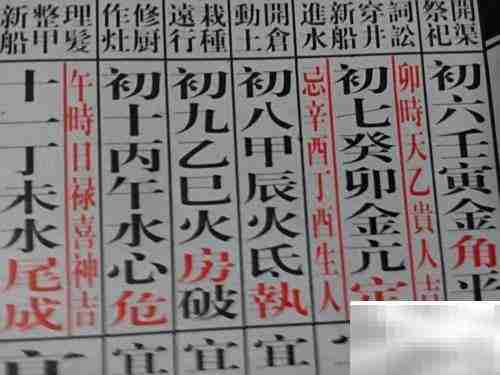 開渠
祭祀
詞訟
穿井
新船
進水
開倉
動土
栽種
遠行
修厨
作灶
理髮
整甲
新船
初六壬寅金角平
卯時天乙貴人吉
初七癸卯金亢定
忌辛酉丁酉生人
初八甲辰火氐執
宜
初九乙巳火房破
宜
初十丙午水心危
宜
午時日禄喜神吉
十一丁未水尾成
宜